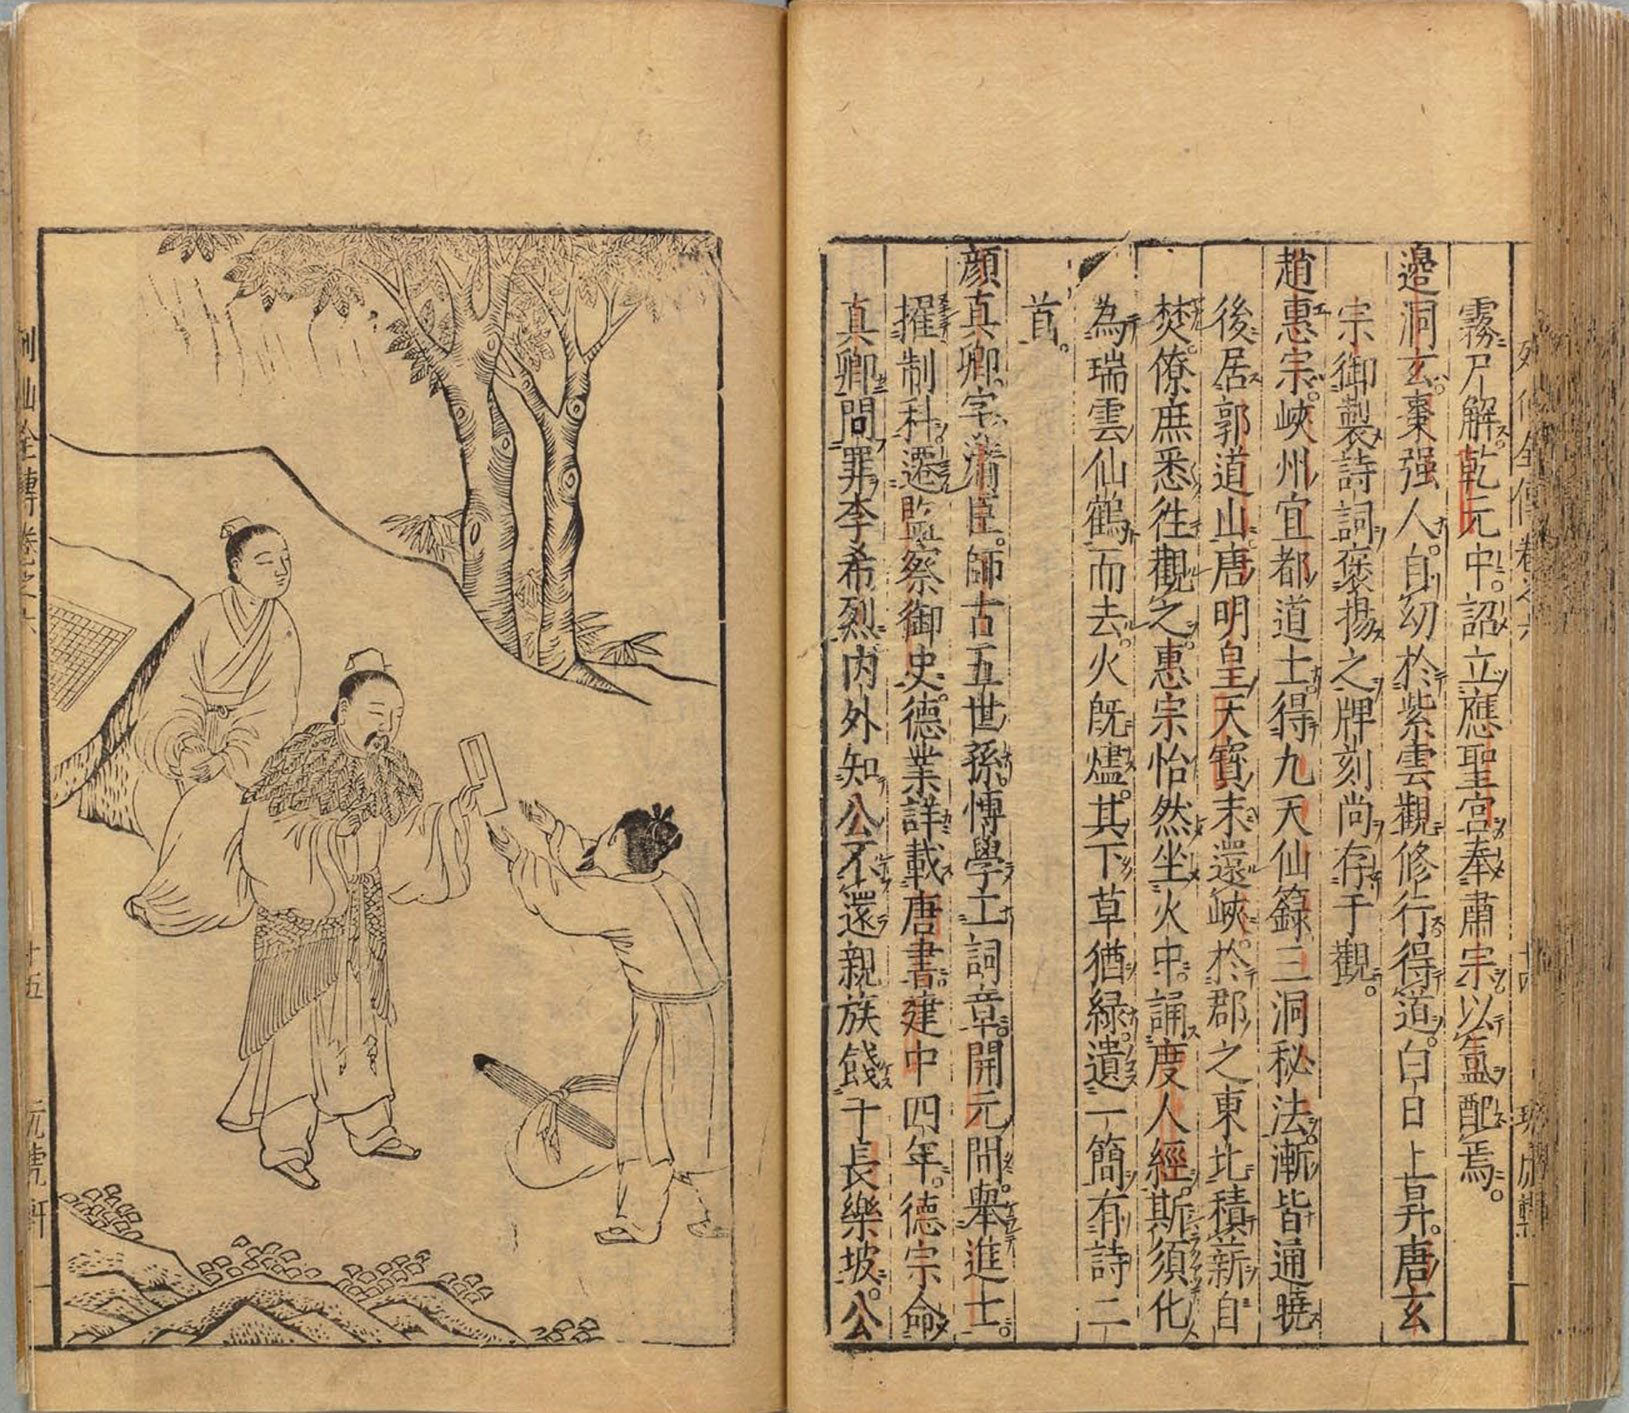 霧尸解。乾元中。詔立應聖宮奉肅宗以氳配焉。
邉洞玄。棗强人。自幼於紫雲觀修行得道。白日上昇。唐玄
宗御製詩詞褒揚之牌刻尚存于觀。
趙惠宗。峽州宜都道士得九天仙籙三洞秘法。漸皆通曉
後居郭道山唐明皇天寶末還峽。於郡之東北積薪自
焚。僚庶悉徃觀之。惠宗怡然坐火中。誦度人經。斯須化
為瑞雲仙鶴而去。火既燼。其下草猶緑。遺一簡有詩二
首。
顔真卿。字清臣。師古五世孫。博學工詞章。開元間。舉進士。
擢制科。遷監察御史。德業詳載唐書。建中四年。德宗命
真卿問罪李希烈内外知公不還親族餞于長樂坡。公
列仙全傳卷之六
十五
玩虎軒